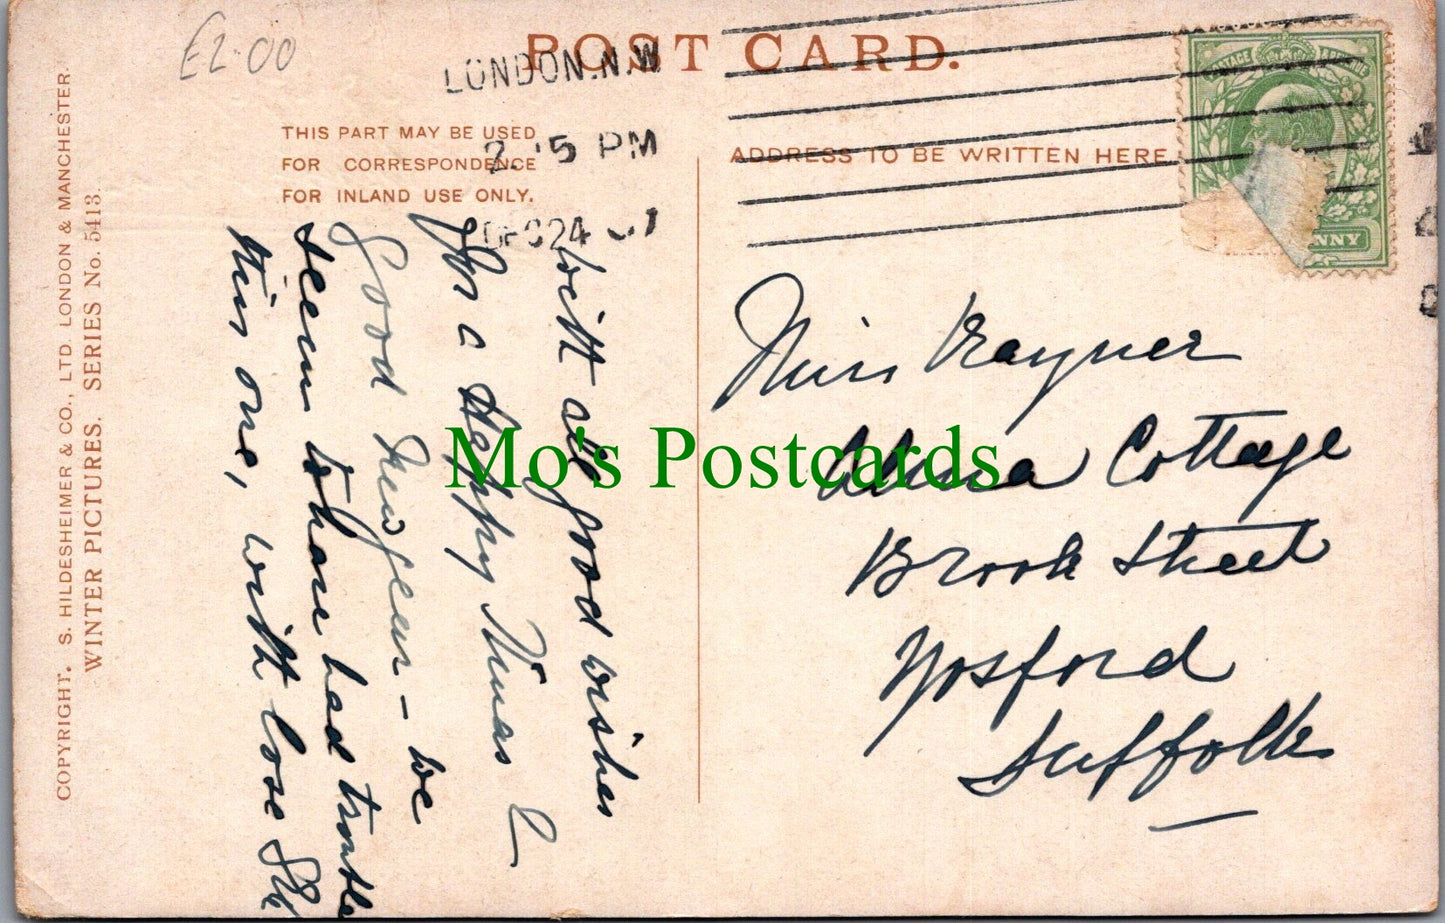 £2.00
POST CARD.
LONDON.N.W
2.15 PM
DEC 24 07
THIS PART MAY BE USED
FOR CORRESPONDENCE
FOR INLAND USE ONLY.
ADDRESS TO BE WRITTEN HERE
NNY
COPYRIGHT. S. HILDESHEIMER & CO., LTD. LONDON & MANCHESTER.
WINTER PICTURES. SERIES No. 5413.
With all good wishes
for a Happy Xmas &
Good New Year - we
seem to have had trouble
this one, with loss
Miss Rayner
Alma Cottage
Brook Street
Yoxford
Suffolk
Mo's Postcards